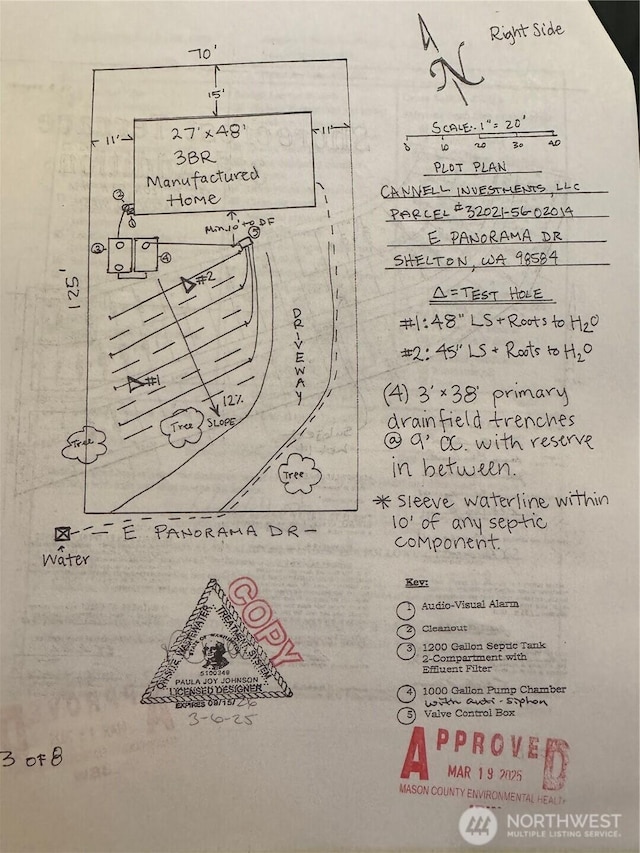 Right Side
70'
N
15'
11'
27' x 48'
11'
3BR
Manufactured
Home
SCALE: 1" = 20'
0 10 20 30 40
PLOT PLAN
CANNELL INVESTMENTS, LLC
PARCEL #32021-56-02014
E PANORAMA DR
SHELTON, WA 98584
Δ = TEST HOLE
#1: 48" LS + Roots to H2O
#2: 45" LS + Roots to H2O
(4) 3' x 38' primary
drainfield trenches
@ 9' OC. with reserve
in between.
* Sleeve waterline within
10' of any septic
component.
2
1
Min 10' to DF
5
3
4
125'
#2
#1
DRIVEWAY
12%
SLOPE
Tree
Tree
Tree
E PANORAMA DR
Water
Key:
1 Audio-Visual Alarm
2 Cleanout
3 1200 Gallon Septic Tank
2-Compartment with
Effluent Filter
4 1000 Gallon Pump Chamber
with anti-siphon
5 Valve Control Box
COPY
5100348
PAULA JOY JOHNSON
LICENSED DESIGNER
EXPIRES 09/15/26
3-6-25
3 OF 8
APPROVED
MAR 19 2025
MASON COUNTY ENVIRONMENTAL HEALTH
NORTHWEST
MULTIPLE LISTING SERVICE®